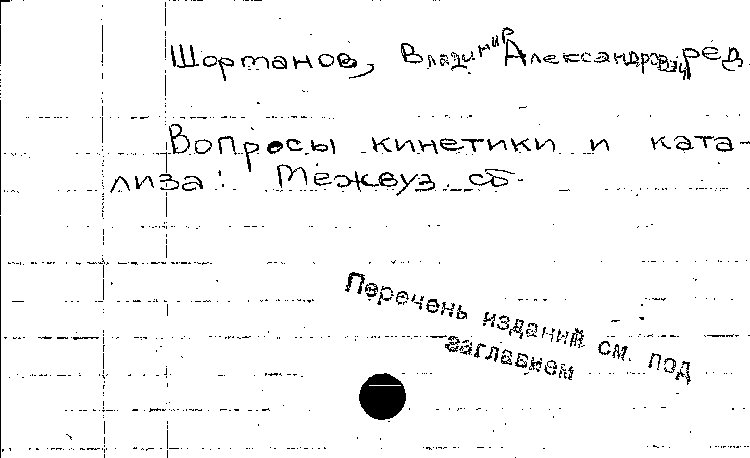 Шортанов, Владимир Александрович, ред.
Вопросы кинетики и ката-
лиза: Межвуз. сб.
Перечень изданий см. под
заглавием